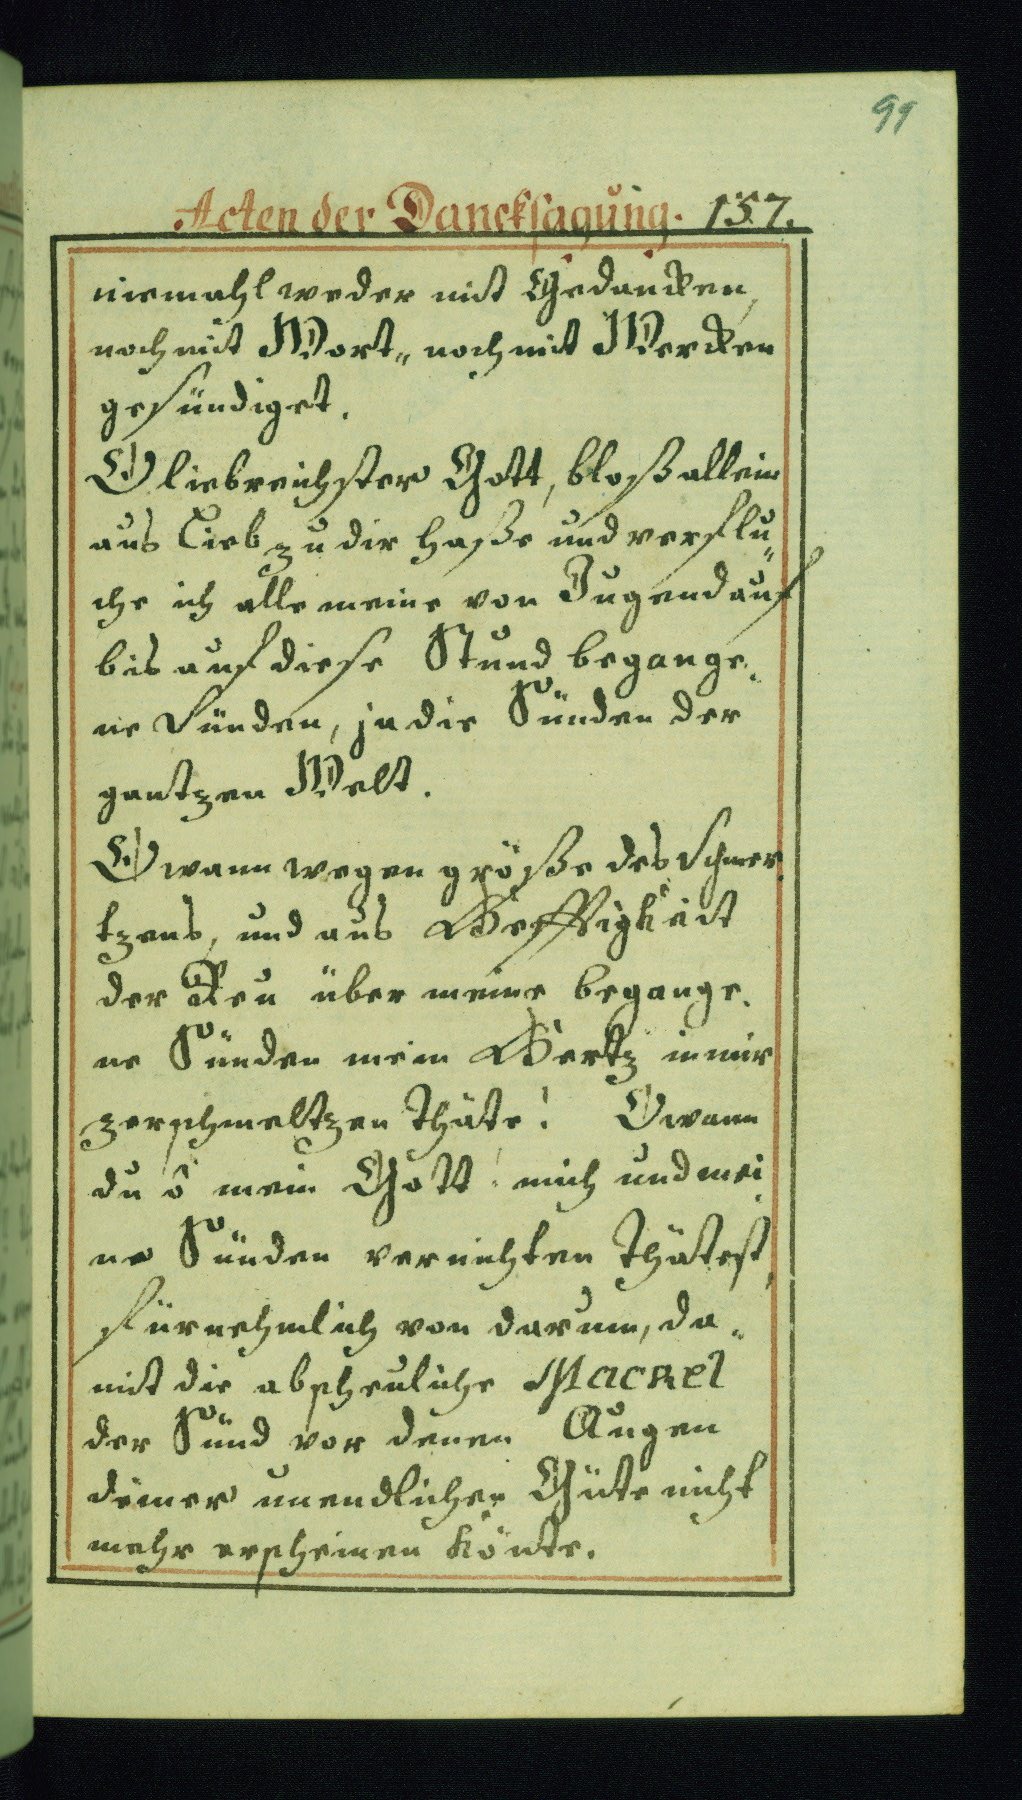 99
Acten der Dancksagung. 157.
niemahl weder mit Gedancken,
noch mit Wort„ noch mit Wercken
gesündiget.
O liebreichster Gott, bloß allein
aus Lieb zu dir haße und verflu„
che ich alle meine von Jugend auf
bis auf diese Stund begange„
ne Sünden, ja die Sünden der
gantzen Welt.
O wann wegen größe des Schmer„
tzens, und aus Hefftigkeit
der Reu über meine begange„
ne Sünden mein Hertz in mir
zerschmeltzen thäte! O wann
du ô mein Gott! mich und mei„
ne Sünden vernichten thätest,
fürnehmlich von darum, da„
mit die abscheuliche Mackel
der Sünd vor denen Augen
deiner unendlichen Güte nicht
mehr erscheinen könte.